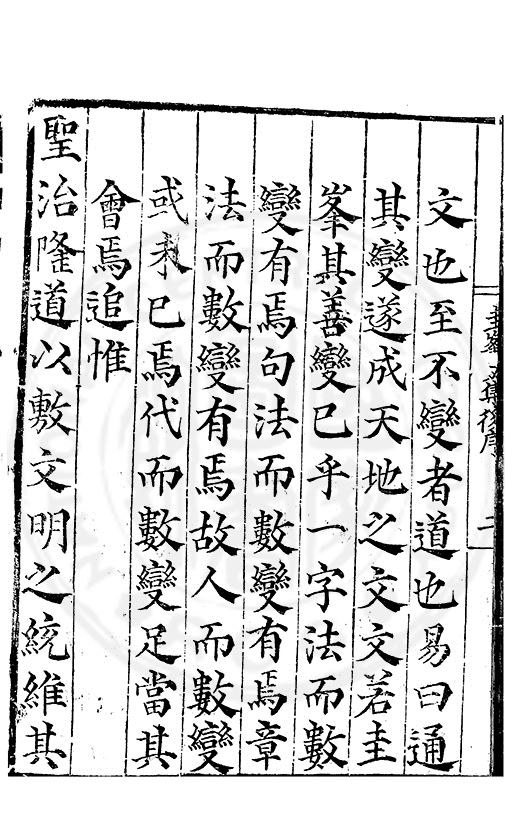 圭峯文集後序 二
文也至不變者道也易曰通
其變遂成天地之文文若圭
峯其善變已乎一字法而數
變有焉句法而數變有焉章
法而數變有焉故人而數變
或未已焉代而數變足當其
會焉追惟
聖治隆道以敷文明之統維其